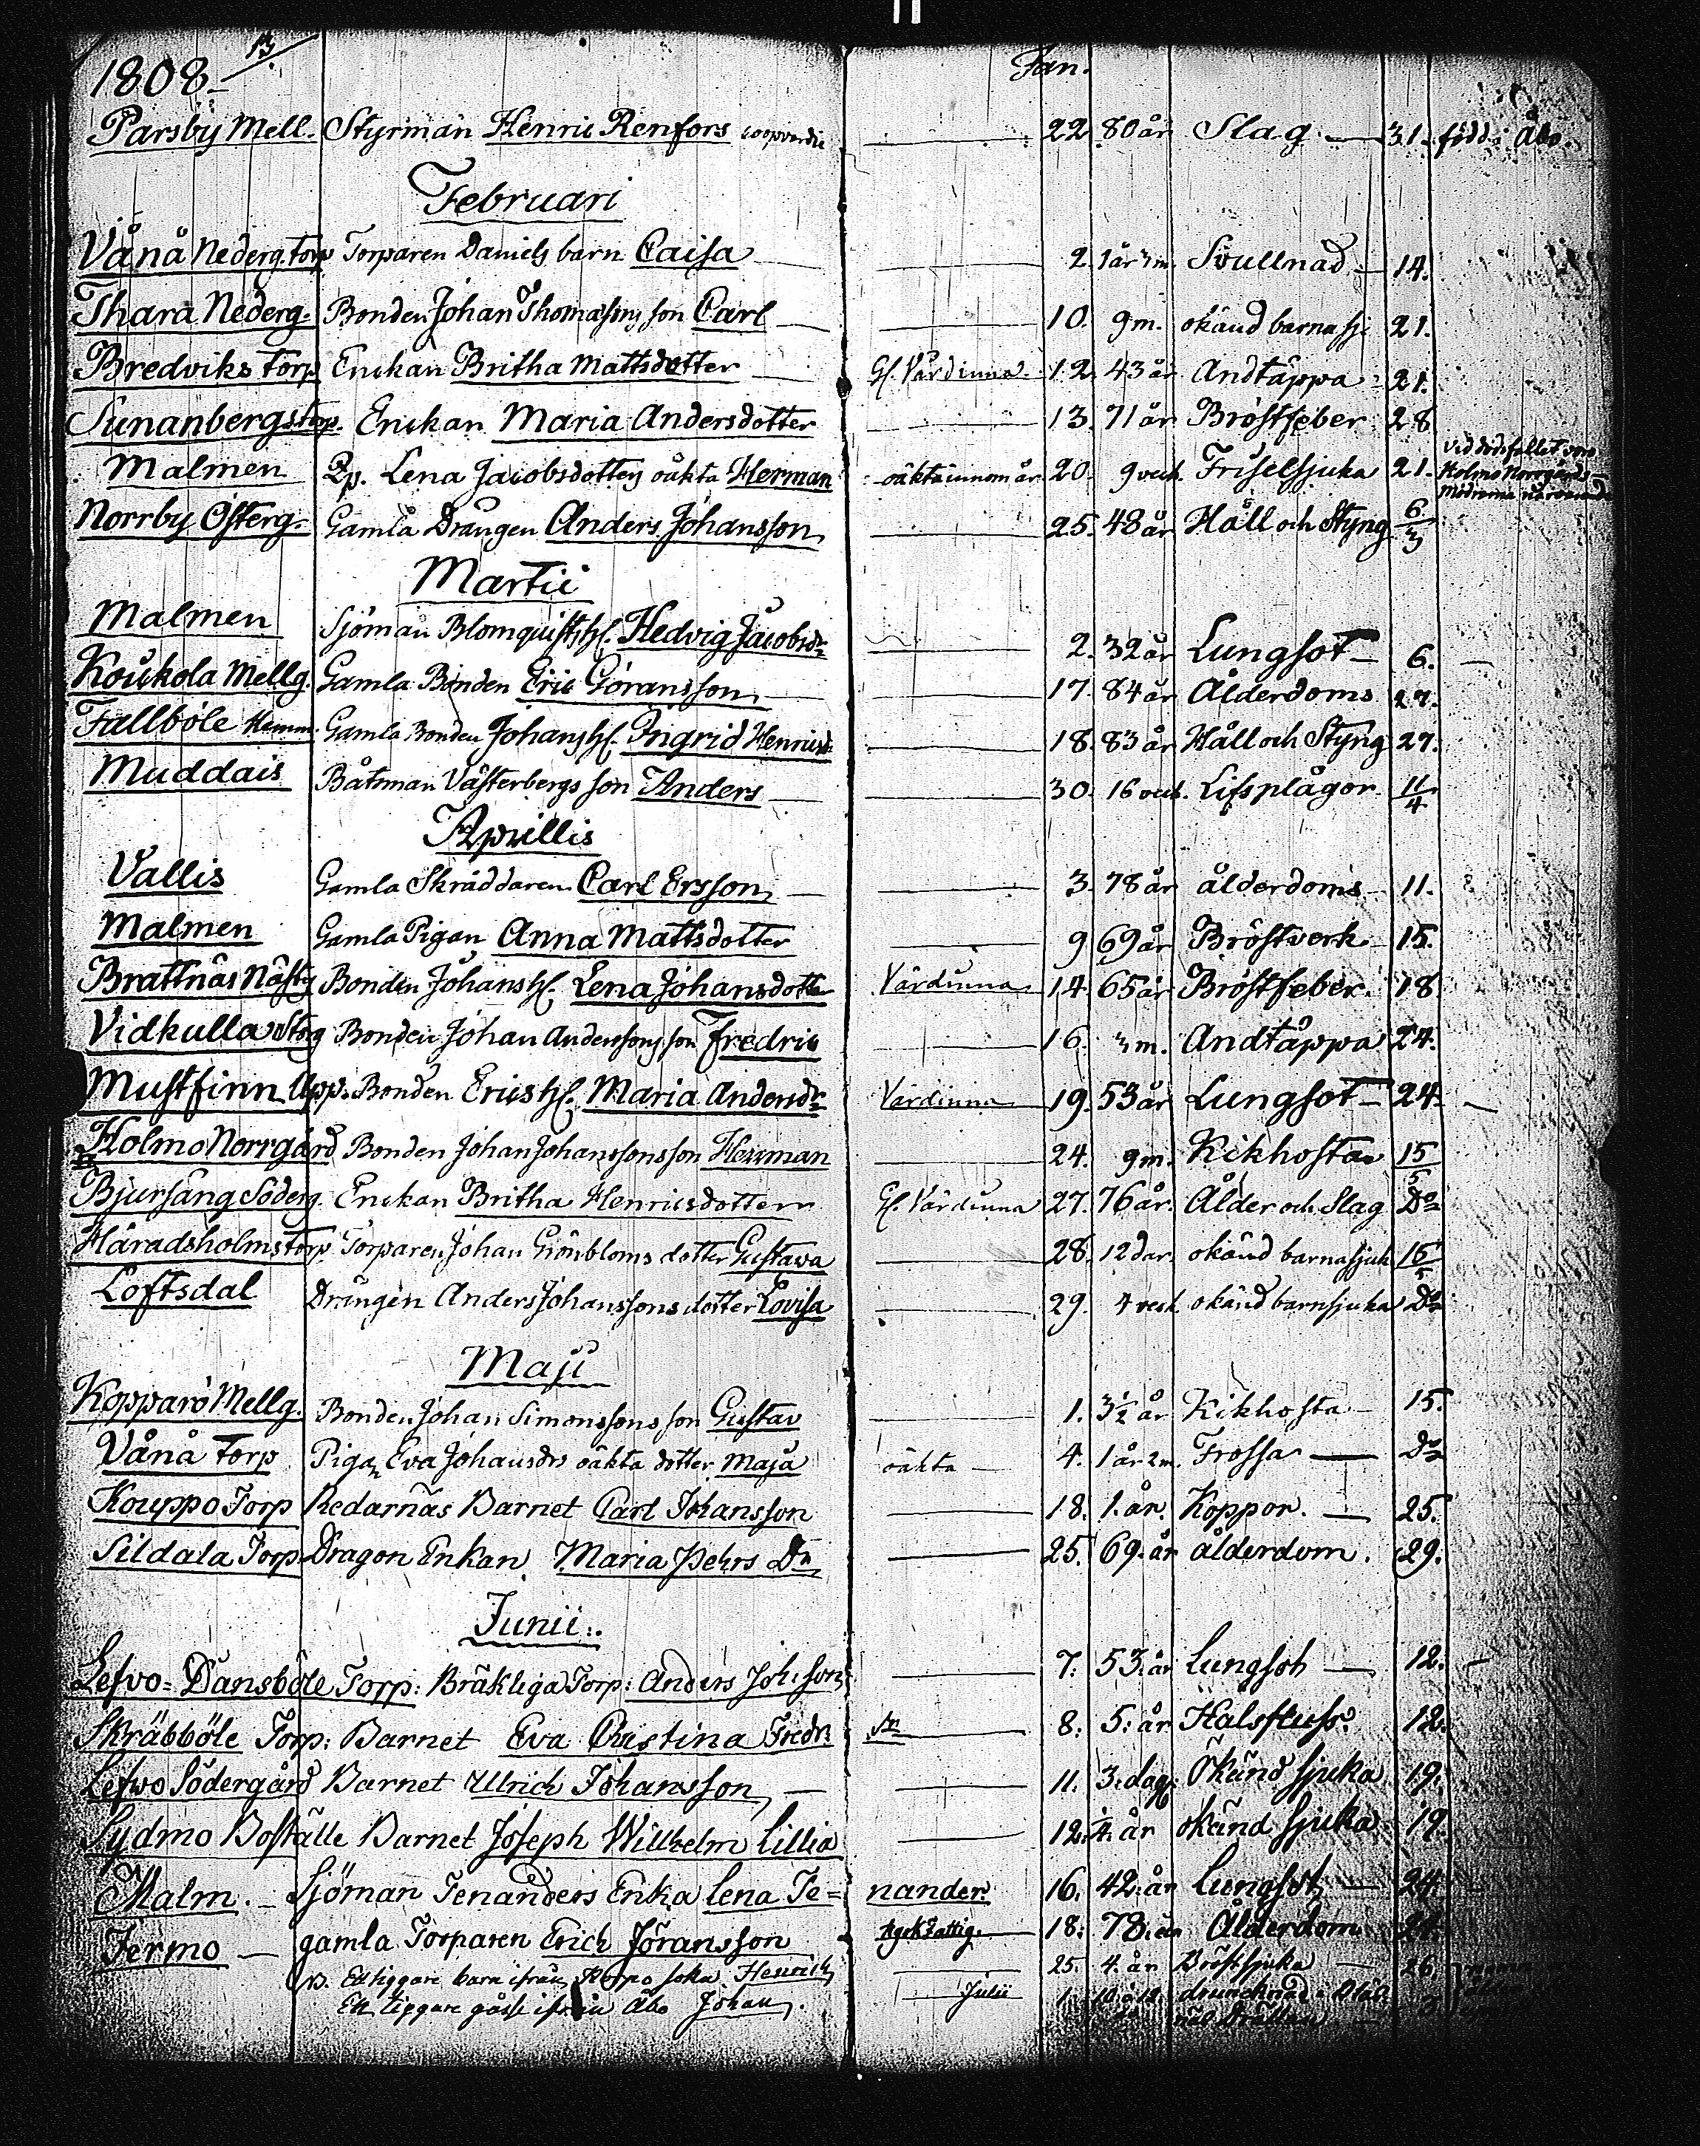 1808 13. Jan.
Parsby Mell. Styrman Henric Renfors 22. 80 år Slag 31. född i Åbo.
Februari
Vånå Nederg. torp Torparen Daniels barn Caisa 2. 1 år Svullnad 14.
Thara Nederg. Bonden Johan Thomassons son Carl 10. 9 m. okänd barnasj. 21.
Bredviks torp Enckan Britha Mattsdotter Gl. Värdinna 12. 43 år Andtäppa 21.
Sunanbergs torp. Enckan Maria Andersdotter 13. 71 år Bröstfeber 28
Malmen Pp. Lena Jacobsdotters oäkta Herman oäkta innom år 20. 9 veck. Friselsjuka 21. vid dödsfallet
Holmo Norrgård
Norrby Österg. Gamla Drängen Anders Johansson 25. 48 år Håll och Styng 6/3
Martii
Malmen Sjöman Blomquists h. Hedvig Jacobsdr 2. 32 år Lungsot 6.
Kouckola Mellg. Gamla Bonden Eric Göransson 17. 84 år Ålderdoms 27.
Fallböle Hemm. Gamla Bonden Johans h. Ingrid Henricsd. 18. 83 år Håll och Styng 27.
Muddais Båtsman Västerbergs son Anders 30. 16 veck. Lifsplågor 11/4
Aprillis
Vallis Gamla Skräddaren Carl Ersson 3. 78 år ålderdoms 11.
Malmen Gamla Pigan Anna Mattsdotter 9 69 år Bröstverk 15.
Brattnäs Näst. Bonden Johans h. Lena Johansdotter Värdinna 14. 65 år Bröstfeber. 18
Vidkulla Storg Bonden Johan Anderssons son Fredric 16. 3 m. Andtäppa 24.
Mustfinn Upp. Bonden Erics h. Maria Andersdr Värdinna 19. 53 år Lungsot 24.
Holmo Norrgård Bonden Johan Johanssons son Herman 24. 9 m. Kikhosta 15/5
Bjursäng Söderg. Enckan Britha Henricsdotter Gl. Värdinna 27. 76 år. Ålder och Slag Do
Häradsholms torp. Torparen Johan Grönbloms dotter Gustava 28. 12 dar. okänd barnasjuk 16/5
Loftsdal Drängen Anders Johanssons dotter Lovisa 29. 4 veck okänd barnsjuka Do
Maji
Kopparö Mellg. Bonden Johan Simonssons son Gustav 1. 3 1/2 år Kikhosta 15.
Vånå torp Pigan Eva Johansdrs oäkta dotter Maja oäkta 4. 1 år 2 m. Frossa Do
Kouppo Torp Redarnäs Barnet Carl Johansson 18. 1. år. Koppor. 25.
Sildala Torp. Dragon Enkan, Maria Pehrs Dr 25. 69. år ålderdom. 29.
Junii.
Lefvo-Dansböle Torp: Bräkliga Torp: Anders Joh:son 7. 53. år Lungsoh 12.
Skräbböle Torp: Barnet Eva Christina Fredr: Dr 8. 5. år Halsfluss 12.
Lefwo Södergård Barnet Ulrich Johansson 11. 3. dag. Okänd sjuka 19.
Sydmo Boställe Barnet Joseph Wilhelm Lillia 12. år okänd sjuka 19.
Malm. Sjöman Tenanders Enka Lena Te= nander 16. 42. år Lungsot 24.
Jermo gamla Torparen Erich Jöransson 18. 78. år Ålderdom 24.
Ett tiggare barn ifrån Korpo soka Henrich 25. 4. år Bröstsjuka 26.
Ett tiggare gåsse ifrån Åbo Johan. Julii 1. drunknad 3.